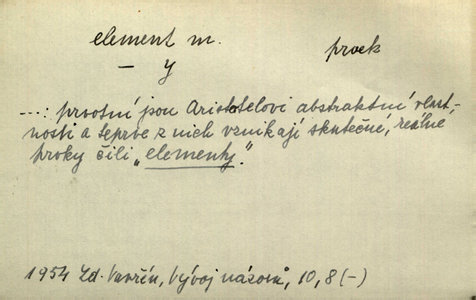 element m.
– y prvek
...: prvotní jsou Aristotelovi abstraktní vlast-
nosti a teprve z nich vznikají skutečné, reálné
prvky čili „elementy“.
1954 Zd. Vavřín, Vývoj názorů, 10, 8 (–)